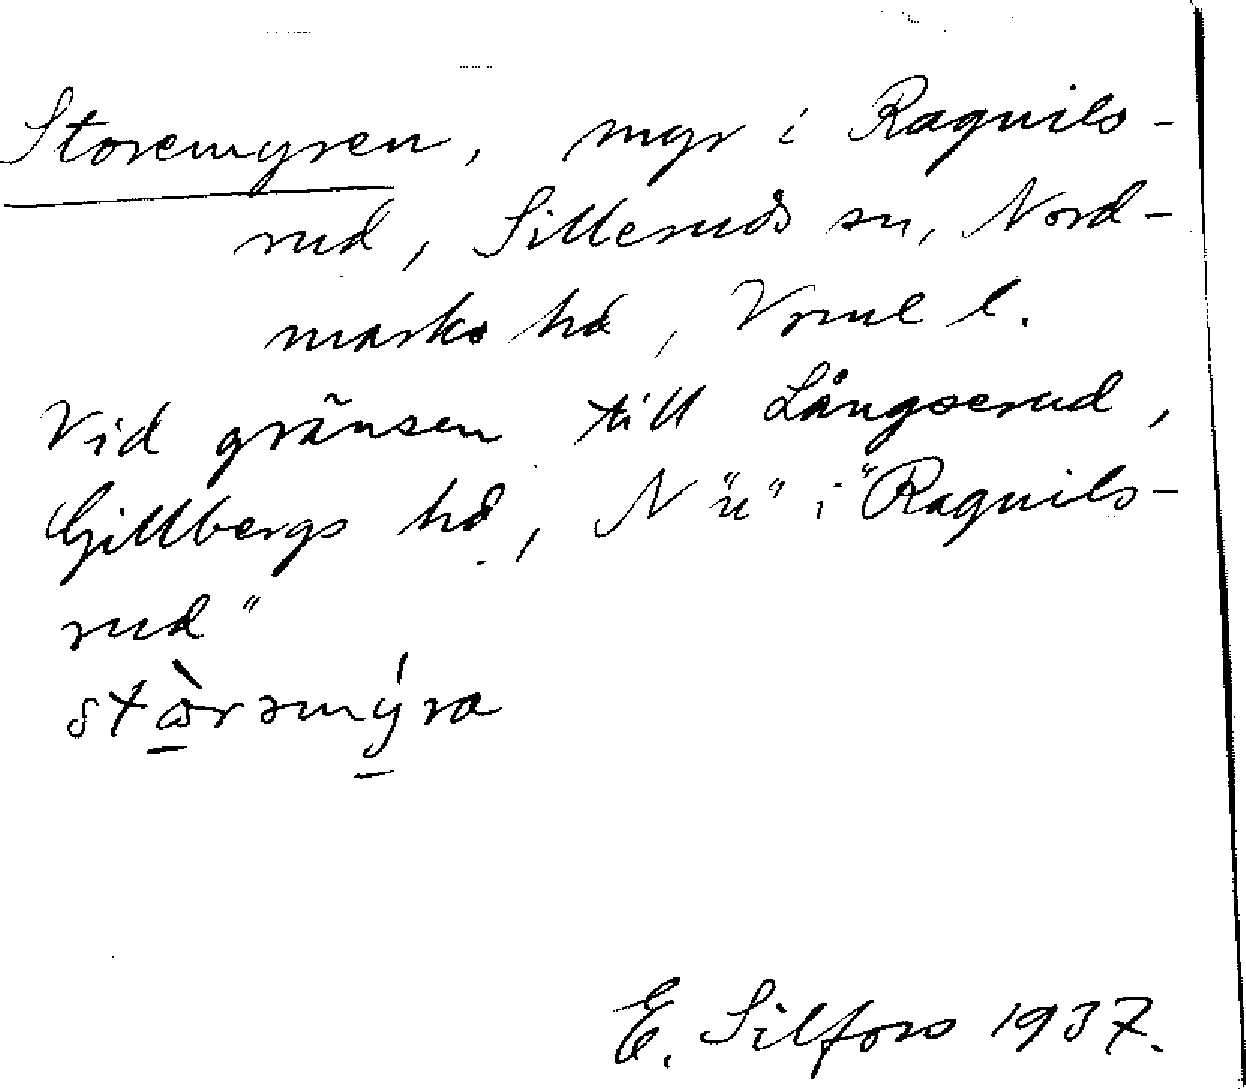 Storemyren, myr i Ragnils-
rud, Silleruds sn, Nord-
marks hd, Vrml l.
Vid gränsen till Långserud,
Gillbergs hd, N "u" i "Ragnils-
rud"
stòrəmýra
E. Silfors 1937.